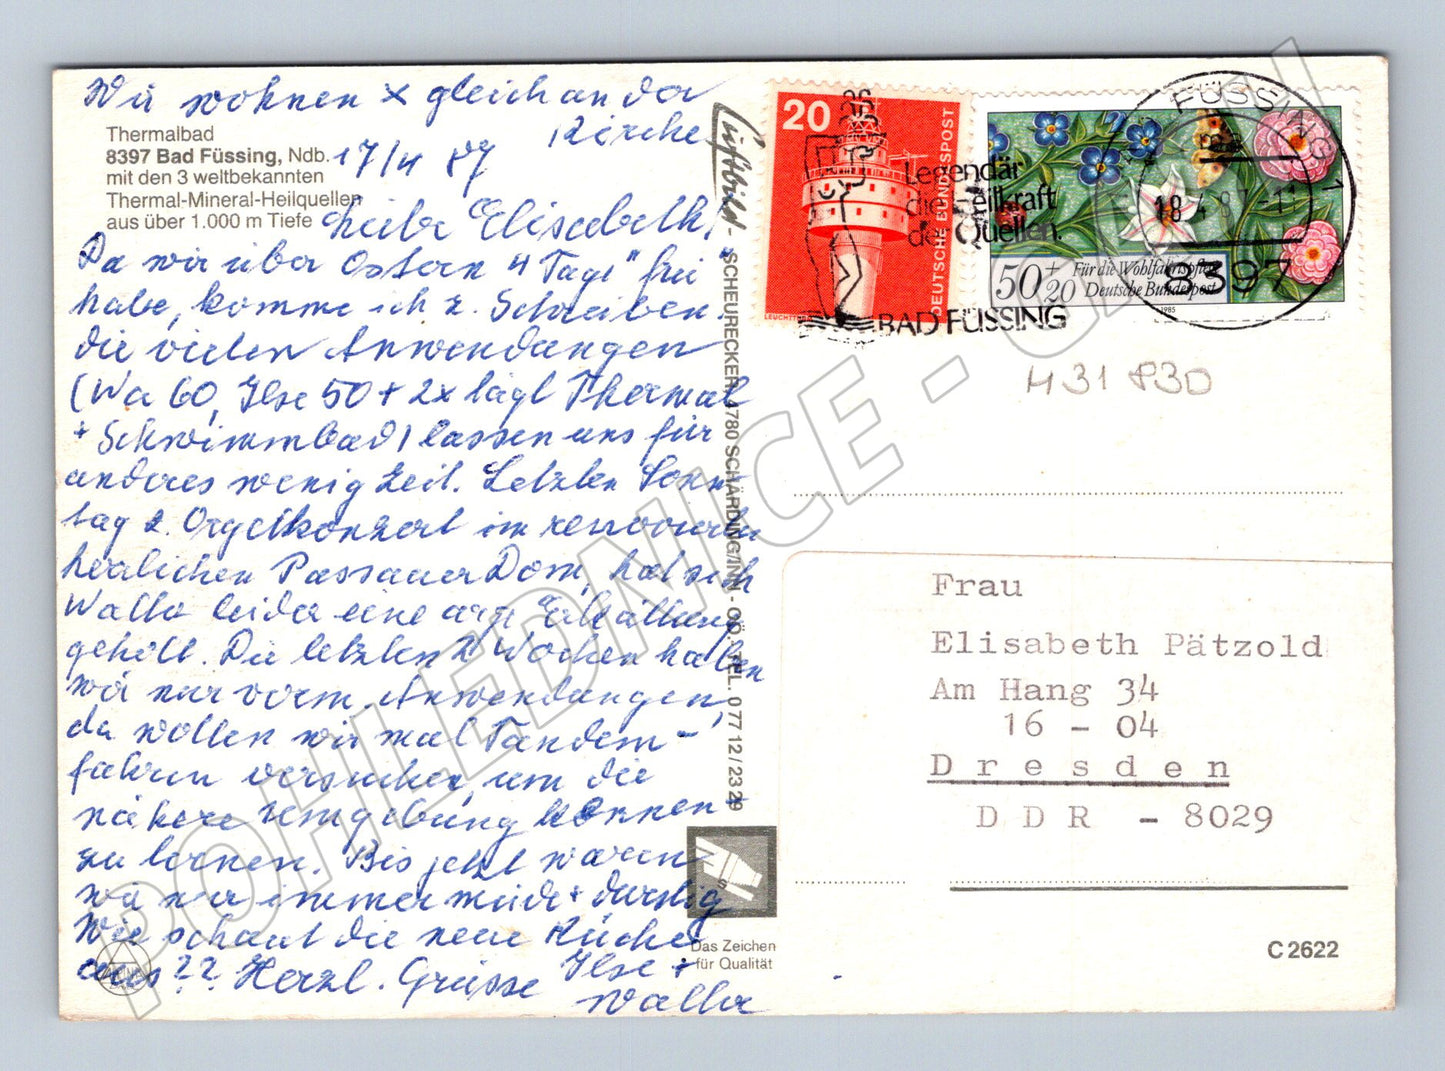 Wir wohnen x gleich an der
Kirche
Thermalbad
8397 Bad Füssing, Ndb.
mit den 3 weltbekannten
Thermal-Mineral-Heilquellen
aus über 1.000 m Tiefe
17/4 87
Liebe Elisabeth,
Da wir über Ostern 4 Tage "frei
habe, komme ich z. Schreiben
die vielen Anwendungen
(Wa 60, Ilse 50 + 2x tägl Thermal
+ Schwimmbad) lassen uns für
anderes wenig Zeit. Letzten Sonn-
tag z. Orgelkonzert im renovierten
herrlichen Passauer Dom, hat sich
Walter leider eine arge Erkältung
geholt. Die letzten 2 Wochen haben
wir nur vorm. Anwendungen,
da wollen wir mal Tandem-
fahren versuchen, um die
nähere Umgebung kennen
zu lernen. Bis jetzt waren
wir nur immer müde + durstig
Wie schaut die neue Küche
aus?? Herzl. Grüsse Ilse +
Walter
Luftbild - SCHEURECKER, 4780 SCHÄRDING/INN - OÖ., TEL. 0 77 12 / 23 29
Das Zeichen
für Qualität
20
DEUTSCHE BUNDESPOST
Legendär
die Heilkraft
der Quellen.
BAD FÜSSING
FÜSSING 1
18.4.87-11
8397
50+20
Für die Wohlfahrtspflege
Deutsche Bundespost
1985
431 830
Frau
Elisabeth Pätzold
Am Hang 34
16 - 04
Dresden
DDR - 8029
C 2622
POHLEDNICE -